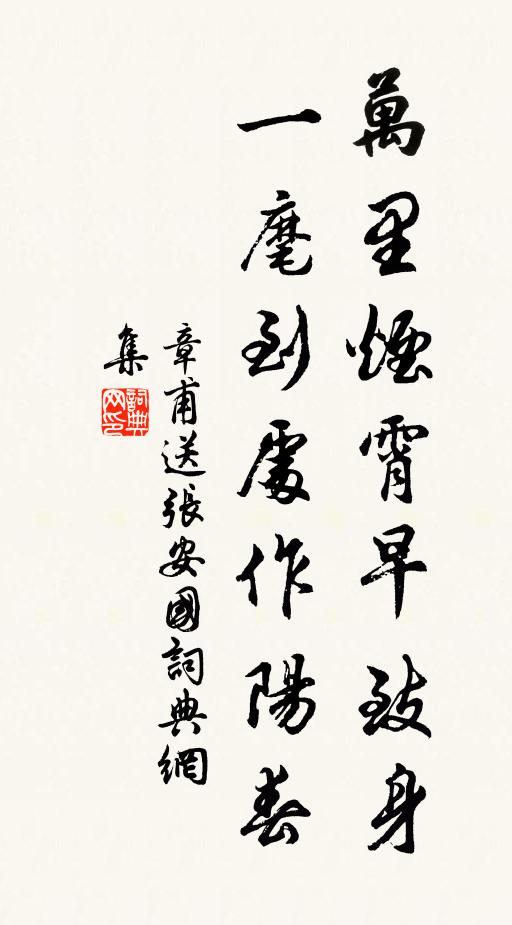 萬里煙霄早致身
一麾到處作陽春
章甫送張安國詞典網
集
詞典
网印